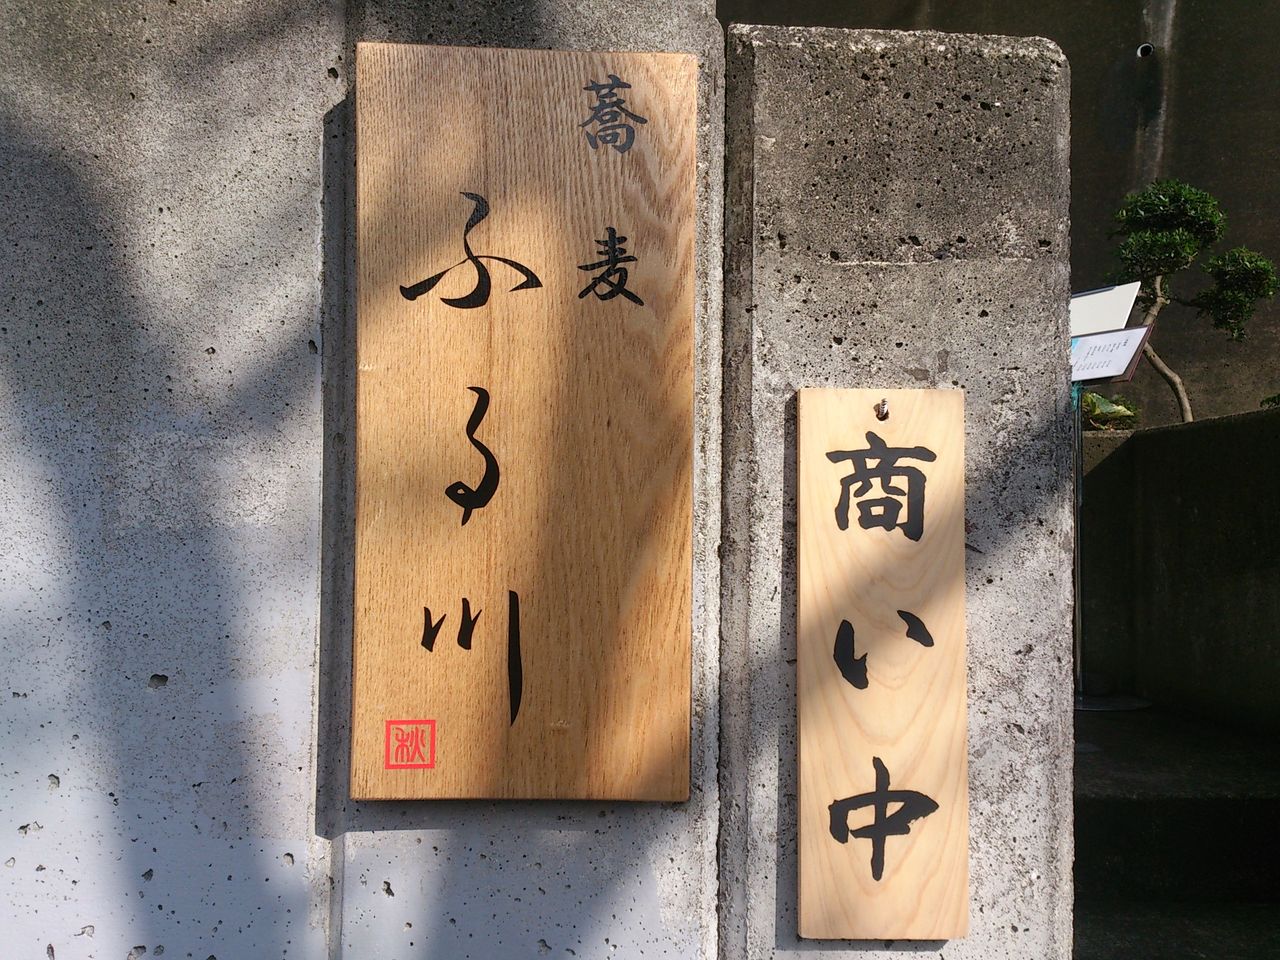 蕎麦
ふる川
秋
商い中